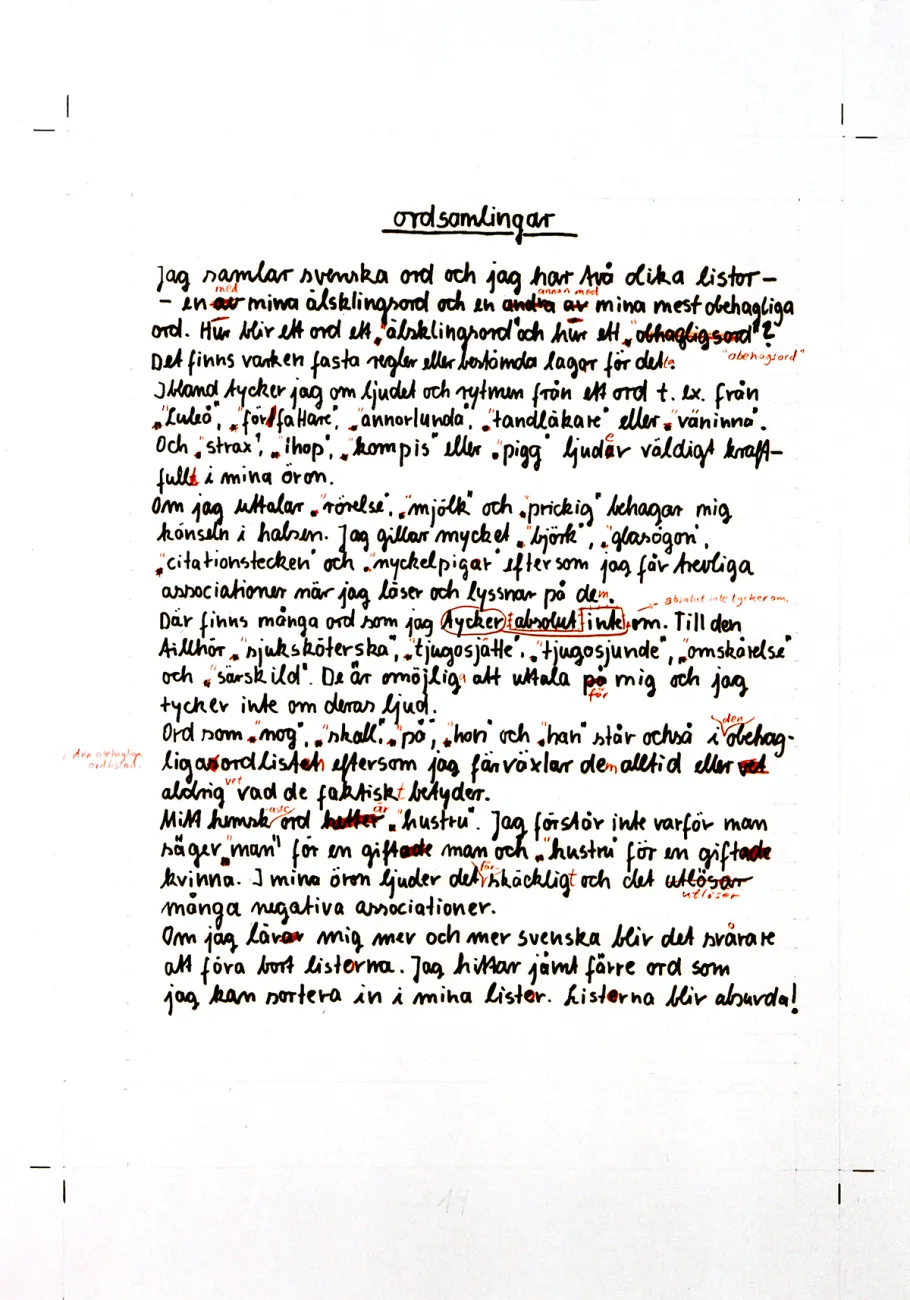 ordsamlingar
Jag samlar svenska ord och jag har två olika listor –
med annan med
– en av mina älsklingsord och en andra av mina mest obehagliga
ord. Hur blir ett ord ett „älsklingsord" och hur ett „obhagligsord"?
"obehagsord"
Det finns varken fasta regler eller bestömda lagar för det.
Ibland tycker jag om ljudet och rytmen från ett ord t. ex. från
„Luleå", „författare", „annorlunda", „tandläkare" eller „väninna".
Och „strax", „ihop", „kompis" eller „pigg" ljuder väldigt kraft-
fullt i mina öron.
Om jag uttalar „rörelse", „mjölk" och „prickig" behagar mig
könseln i halsen. Jag gillar mycket „björk", „glasögon",
„citationstecken" och „nyckelpigar" eftersom jag får trevliga
associationer när jag läser och lyssnar på dem.
absolut inte tycker om.
Där finns många ord som jag tycker absolut inte om. Till den
tillhör „sjuksköterska", „tjugosjätte", „tjugosjunde", „omskärelse"
och „särskild". De är omöjliga att uttala på mig och jag
för
tycker inte om deras ljud.
den
Ord som „nog", „skall", „på", „hon" och „han" står också i obehag-
den obehagliga
ordlistan.
ligasordlisteh eftersom jag förväxlar dem alltid eller vet
vet
aldrig vad de faktiskt betyder.
aste är
Mitt hemsk ord hetter „hustru". Jag förstör inte varför man
säger „man" för en giftade man och „hustru" för en giftade
för
kvinna. I mina öron ljuder det skäckligt och det utlösar
utlöser
många negativa associationer.
Om jag lärar mig mer och mer svenska blir det svårare
att föra bort listerna. Jag hittar jämt färre ord som
jag kan sortera in i mina lister. Listerna blir absurda!
14